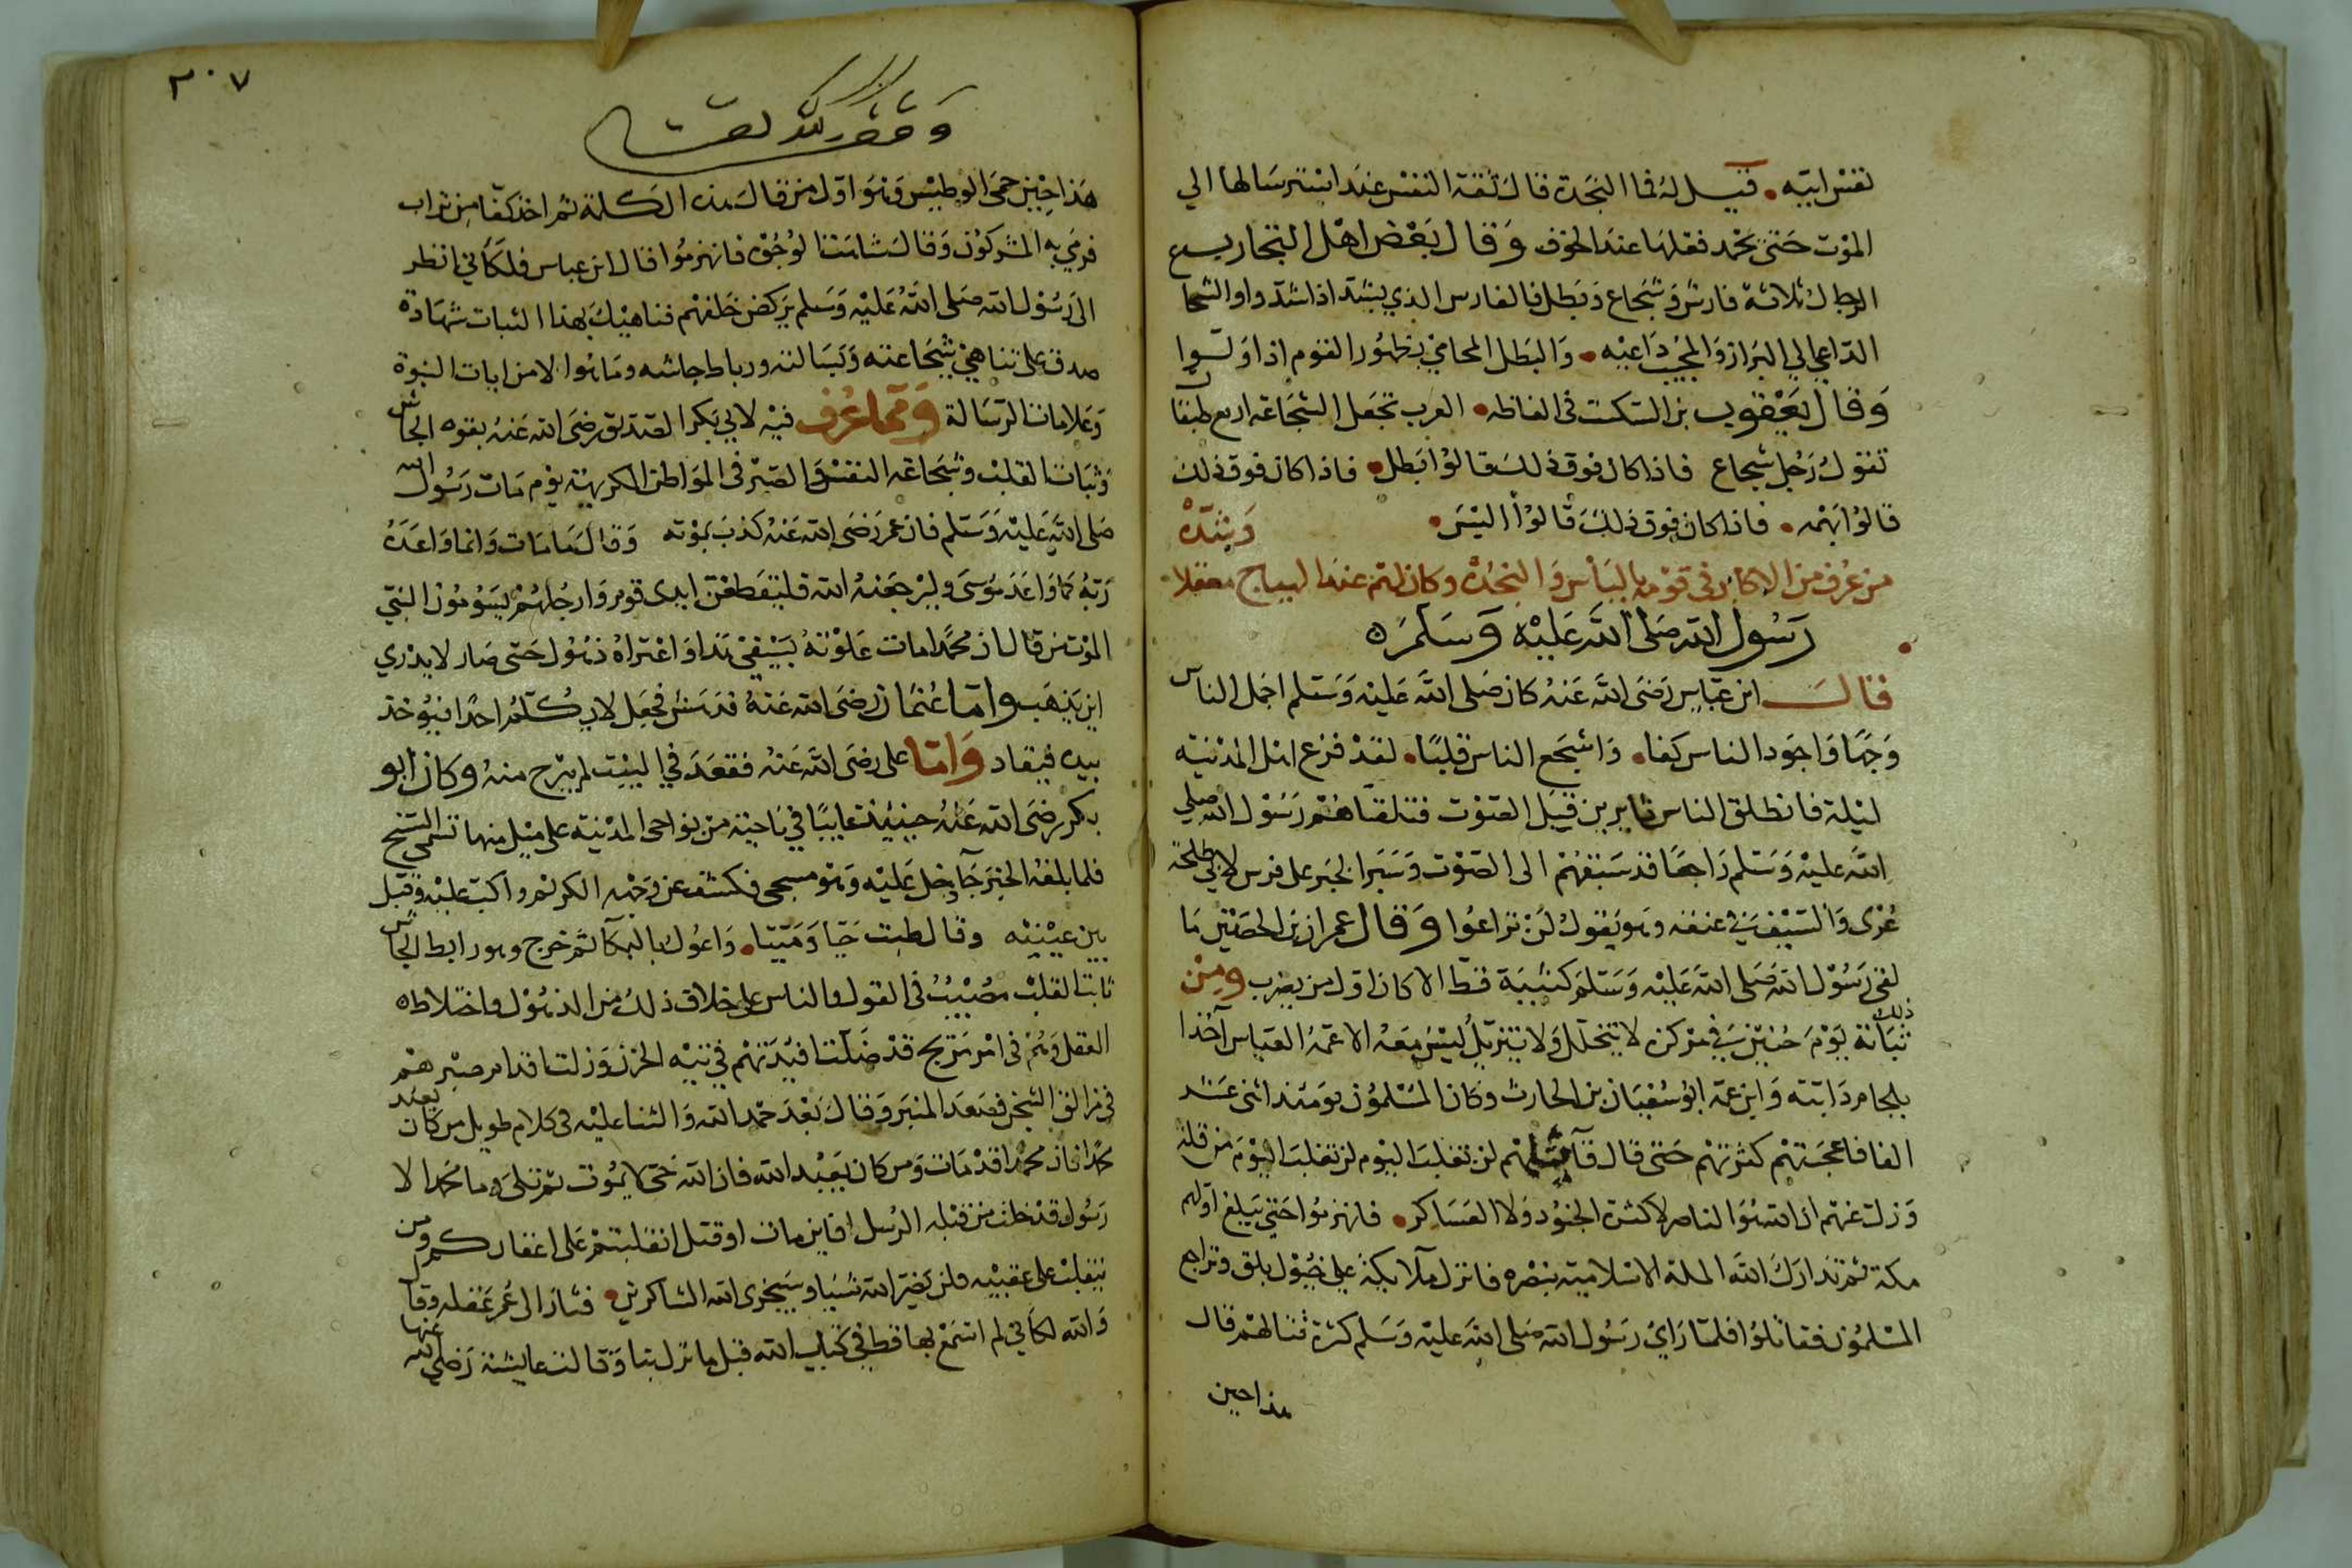 نفس ابيّه • فقيل له فما النجدة قال ثقة النفس عند استرسالها الي
الموْت حَتى يحمد فعلها عند الخوف وَقال بَعْض اهْل التجاريب
الرجال ثلاثة فارسٌ وَشجَاع وَبَطل فالفارس الذي يشدّ اذا شدّوا والشجا
الدّاعي الي البَراز وَالمجيب دَاعيْه • وَالبَطل المحامي بظهُور القوم اذا وَلوا
وَقال يَعْقوب بن السكت في الفاظه • العرب تجعَل الشجَاعة اربع طبقا
تقول رَجُل شجاع فاذا كان فوق ذلك قالوْا بَطل • فاذا كان فوق ذلك
قالوْا بَهْمه • فاذا كان فوق ذلك قالوْا اليْسَ • وَيْنَدهْ
من عُرف من الاكابر في قوْمه بالبَأس وَالنجْدة وكان لهم عند الهياج معقلا
رَسُول الله صَلى اللهُ عَليْه وَسَلم ٥
قال ابن عبّاس رَضيَ اللهُ عَنهُ كان صَلى اللهُ عَليْه وَسَلم اجمل الناس
وَجها وَاجوَد الناس كفا • وَاشجَع الناس قلبًا • لقدْ فزع اهل المدْينة
ليْلة فانطلق الناس ثايرين قبل الصَوْت فتلقاهُم رَسُوْل الله صلي
اللهُ عليْه وَسَلم رَاجعًا قد سَبَقهُمْ الى الصَوْت وَسَبَرا لخبَر على فرس لابي طلحة
عُرْى وَالسَيْف في عنقه وهو يَقولُ لَنْ تراعُوا وَقال عمران بن الحصَيْن مَا
لقى رَسُوْل الله صَلى اللهُ عَليْه وَسَلمَ كتيبَة قط الا كان اوّل من يضرب ومِنْ
ذلك
ثبَاته يَوْمَ حُنيْن في مرْكزه لا يتخلل وَلا يتزيّل ليْسَ مَعَهُ الا عمّهُ العبَاس آخذا
بلجام دَابته وَابن عمّه ابوْ سُفيَان بن الحارث وكان المسْلموُن يوْمَئذ اثنى عَشر
الفا فاعجَبتهُم كثرتهُم حَتى قال قآئلهُم لن نغلبَ اليوْم لن نغلبَ اليوْمَ من قلة
وَزلت عنهم ان اللهَ هُوَ الناصر لا كثرة الجنوُد وَلا العَسَاكر • فانهزموُا حَتي بَلغ اوّلهم
مكة ثم تدَاركَ اللهُ الملة الاسْلاميّه بنصْره فانزل ملآئكة علي خيُوْل بلق وتراجع
المسْلموُن فقاتلوُا فلمّا رَايْ رَسُول الله صَلى اللهُ عَليْه وَسَلم كثرة قتالهمْ قال
هذا حين
٣٠٧
هَذا حِيْن حمىَ الوَطيْس وَهوَ اوّل من قال هذه الكلمة ثم اخذ كفا من تراب
فرمي به المشركوُن وَقال شاهَتْ الوُجُوْه فانهزموُا قال ابن عباس فلكَأني انظر
الى رَسُوْل الله صَلى اللهُ عَليْه وَسَلم يَركض خَلفهُم فناهيْكَ بهذا الثبات شهَادة
صدق على تناهيْ شجَاعته وَبَسَالته ورباط جاشه ومَا هُوَ الا من ايات النبوَة
وَعلامات الرسَالة وَمّما عُرف فيْه لابي بَكر الصّديق رضَى الله عَنهُ بقوة الجاش
وَثبَات القلبْ وَشجَاعة النفسْ وَالصَبْر في المَوَاطن الكريهَة يوْم مَات رَسُوْل الله
صَلى اللهُ عَليْه وَسَلم فان عمرَ رَضىَ الله عَنهُ كذبَ بموْته وَقال مَا مَات وَانما وَاعَدَهُ
رَبهُ كمَا وَاعَدَ مُوْسَى وليَرْجعَنهُ الله فليَقطعْن ايدى قوم وَارجُلهُمْ يسَوُموْن النبيّ
الموْت من قال ان محمّدا مات عَلوْته بسَيْفي هَذا وَاعْتراهُ ذهوُل حَتى صَار لا يدْري
اين يَذهَب وامّا عُثمَان رَضَى الله عَنهُ فدهشَ فجَعل لا يكلمُ احدًا فيُؤخذ
بيده فيقاد وَامّا علي رضَى الله عَنهُ فقعَدَ في البيْت لم يَبْرح منهُ وَكان ابو
بكر رضَى الله عَنهُ حينئذ غايبًا في نَاحيَة من نواحى المدْينة على ميْل منها تسمي السنح
فلما بلغهُ الخبَر جَآ وَدخل عَليْه وَهوَ مسجى فكشف عن وَجْهه الكريْم واكبّ عليْه وقبّل
بين عيْنيْه وقال طبت حَيّا وَمَيّتا • وَاعوُل بالبكآ ثم خرج وهوَ رابط الجاش
ثابت القلبْ مصُيْبٌ في القول والناس على خلاف ذلك من الذهوُل واختلاط ٥
العقل وَهُمْ في امْر مَريج قدْ ضلّت افيْدَتهُم في تيْه الحزن وَزلت اقدام صبْرهمْ
في مزالق الشجن فصَعَد المنبَر وَقال بَعْدَ حمْد الله وَالثنا عليْه في كلام طويل من كان يعبْد
محمدًا فان محمّدا قدْ مَات وَمن كان يَعْبد الله فان الله حَىّ لا يموُت ثم تلىَ وما محَمدا الا
رَسُول قدْ خلت من قبْله الرُسل افاين مات او قتل انقلبتمْ عَلى اعقابكم وَمن
ينقلبْ على عقبيْه فلن يَضرّ الله شيْيا وسَيجزى الله الشاكرين • فثابَ الى عُمر عَقله وقال
وَالله لكأني لم اسْمَعْ بها قط في كتاب الله قبل مَا نزل بنا وَقالت عايشة رَضيَ الله عنها